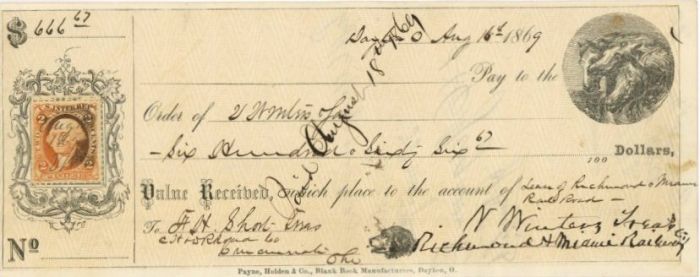 $ 666 67
Dayton O Aug 16th 1869
Pay to the
Order of V Winters Tr
Six Hundred & Sixty Six 67
100 Dollars,
Value Received, which place to the account of Lease of Richmond & Miami
Rail Road
To F. H. Short Treas
C H & D R Co
Cincinnati Ohio
V Winters Treas
Richmond & Miami Railway
No
Paid August 18th 1869
U.S. INTER. REV.
2 2
Payne, Holden & Co., Blank Book Manufacturers, Dayton, O.